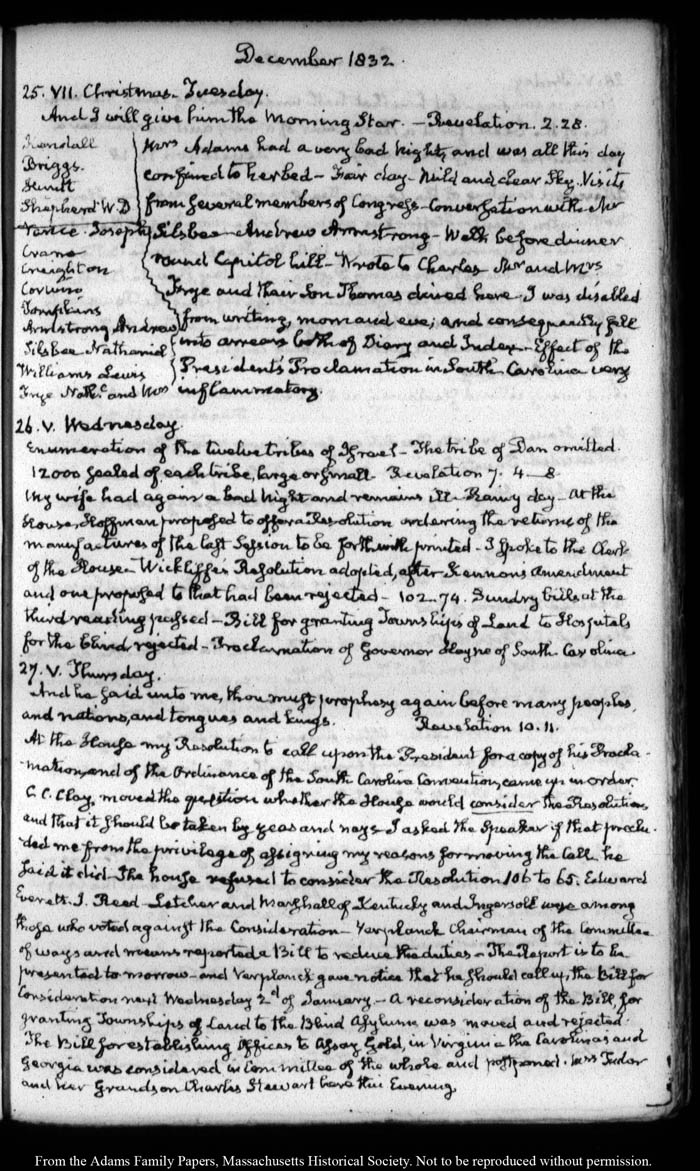 December 1832.
25. VII. Christmas. Tuesday.
And I will give him the Morning Star. — Revelation. 2.28.
Kendall
Briggs.
Hewitt
Shepherd W. D
Vance. Joseph
Crane
Creighton
Corwin
Tompkins
Armstrong Andrew
Silsbee Nathaniel
Williams Lewis
Frye Nathl. and Mrs
Mrs Adams had a very bad Night, and was all this day
confined to her bed – Fair day – Mild and clear Sky. Visits
from several members of Congress – Conversation with Mr
Silsbee – Andrew Armstrong – Walk before dinner
round Capitol hill – Wrote to Charles. Mr and Mrs
Frye and their Son Thomas dined here. I was disabled
from writing, morn and eve; and consequently fall
into arrears both of Diary and Index – Effect of the
President's Proclamation in South Carolina very
inflammatory.
26. V. Wednesday.
Enumeration of the twelve tribes of Israel – The tribe of Dan omitted.
12000 sealed of each tribe, large or small. Revelation 7. 4–8
My wife had again a bad Night and remains ill – Rainy day – At the
House, Hoffman proposed to offer a Resolution ordering the returns of the
manufactures of the last Session to be forthwith printed – I spoke to the Clerk
of the House – Wickliffe's Resolution adopted, after Kennon's amendment
and one proposed to that had been rejected – 102–74. Sundry bills at the
third reading passed – Bill for granting Townships of Land to Hospitals
for the blind rejected – Proclamation of Governor Hayne of South Carolina.
27. V. Thursday.
And he said unto me, thou must prophesy again before many peoples,
and nations, and tongues and kings. Revelation 10.11.
At the House my Resolution to call upon the President for a copy of his Procla-
mation, and of the Ordinance of the South Carolina Convention, came up in order.
C. C. Clay, moved the question whether the House would consider the Resolution,
and that it should be taken by yeas and nays – I asked the Speaker if that preclu-
ded me from the privilege of assigning my reasons for moving the Call. he
said it did – The house refused to consider the Resolution 106 to 65. Edward
Everett. J. Reed – Letcher and Marshall of Kentucky and Ingersoll were among
those who voted against the Consideration – Verplanck Chairman of the Committee
of ways and means reported a Bill to reduce the duties – The Report is to be
presented to morrow – and Verplanck gave notice that he should call up, the Bill for
Consideration next Wednesday 2d of January – A reconsideration of the Bill, for
granting Townships of Land to the Blind Asylums was moved and rejected.
The Bill for establishing Offices to Assay Gold, in Virginia the Carolinas and
Georgia was considered in Committee of the whole and postponed. Mrs Tudor
and her Grandson Charles Stewart here this Evening.
From the Adams Family Papers, Massachusetts Historical Society. Not to be reproduced without permission.